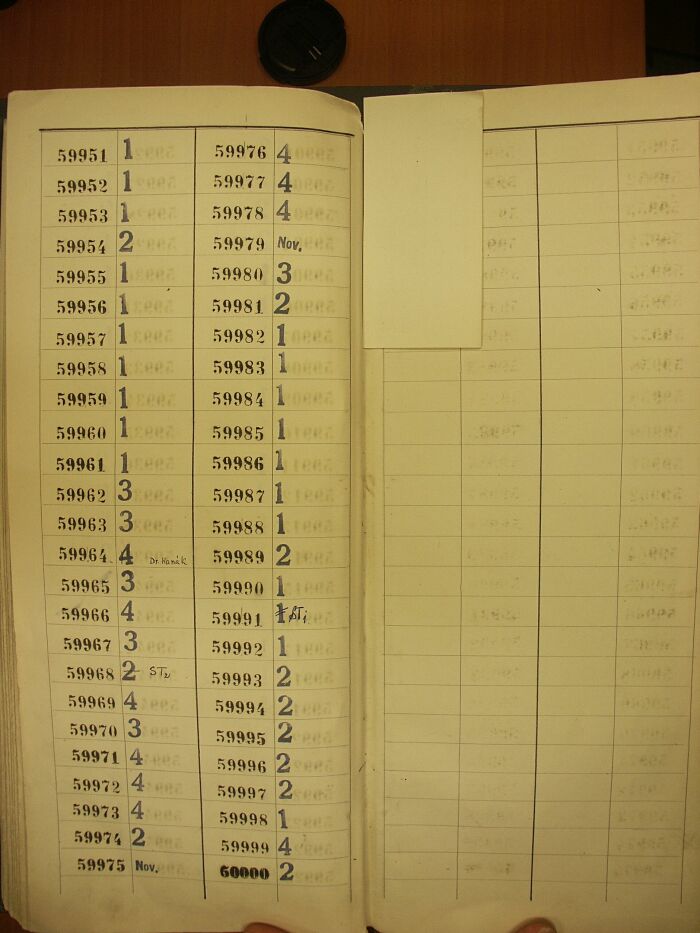 59951 1
59952 1
59953 1
59954 2
59955 1
59956 1
59957 1
59958 1
59959 1
59960 1
59961 1
59962 3
59963 3
59964 4 Dr. Hanák
59965 3
59966 4
59967 3
59968 2 ST2
59969 4
59970 3
59971 4
59972 4
59973 4
59974 2
59975 Nov.
59976 4
59977 4
59978 4
59979 Nov.
59980 3
59981 2
59982 1
59983 1
59984 1
59985 1
59986 1
59987 1
59988 1
59989 2
59990 1
59991 1 ST1
59992 1
59993 2
59994 2
59995 2
59996 2
59997 2
59998 1
59999 4
60000 2